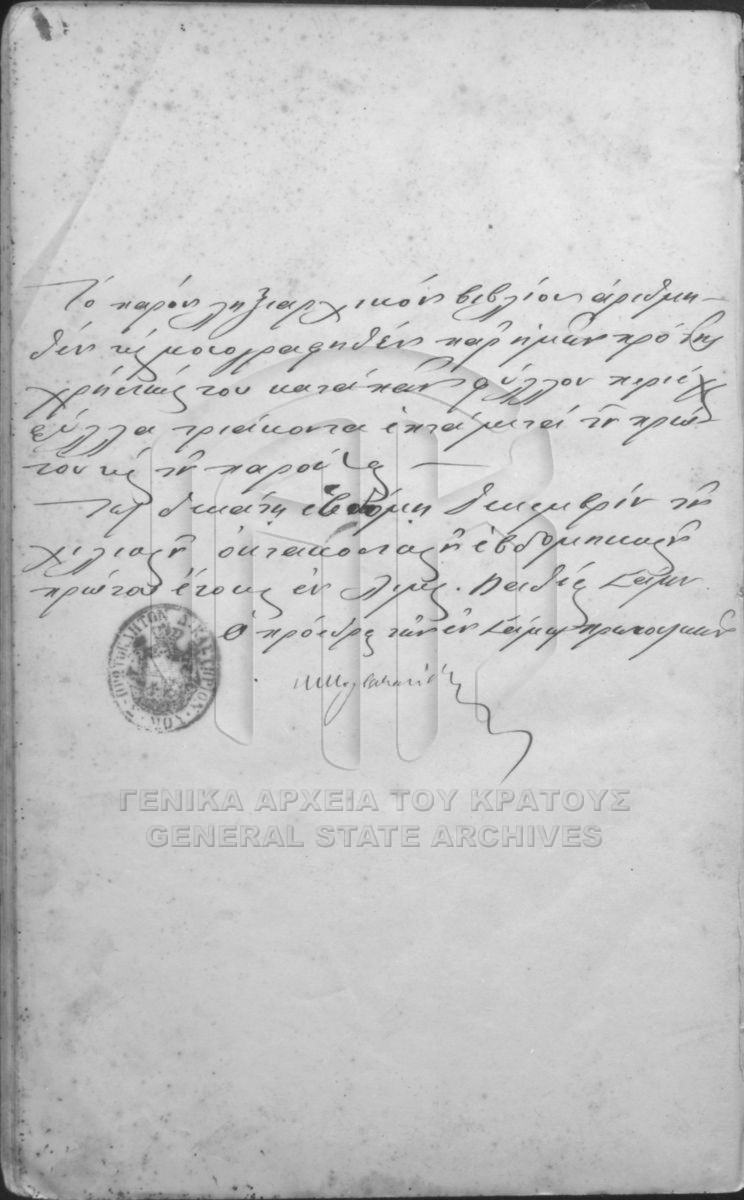 Τὸ παρὸν ληξιαρχικὸν βιβλίον ἀριθμη-
θὲν καὶ μονογραφηθὲν παρ' ἡμῶν πρὸ τῆς
χρήσεώς του κατὰ πᾶν φύλλον περιέχ
φύλλα τριάκοντα ἑπτὰ μετὰ τοῦ πρώ-
του καὶ τοῦ παρόντος
Τῇ δεκάτῃ ἑβδόμῃ Δεκεμβρίου τοῦ
χιλιοστοῦ ὀκτακοσιοστοῦ ἑβδομηκοστοῦ
πρώτου ἔτους ἐν Λιμ. Βαθέος Σάμου
Ὁ πρόεδρος τῶν ἐν Σάμῳ πρωτοδικῶν
ΠΡΩΤΟΚΛΗΤΟΝ ΔΙΚΑΣΤΗΡΙΟΝ ΣΑΜΟΥ
ΓΕΝΙΚΑ ΑΡΧΕΙΑ ΤΟΥ ΚΡΑΤΟΥΣ
GENERAL STATE ARCHIVES